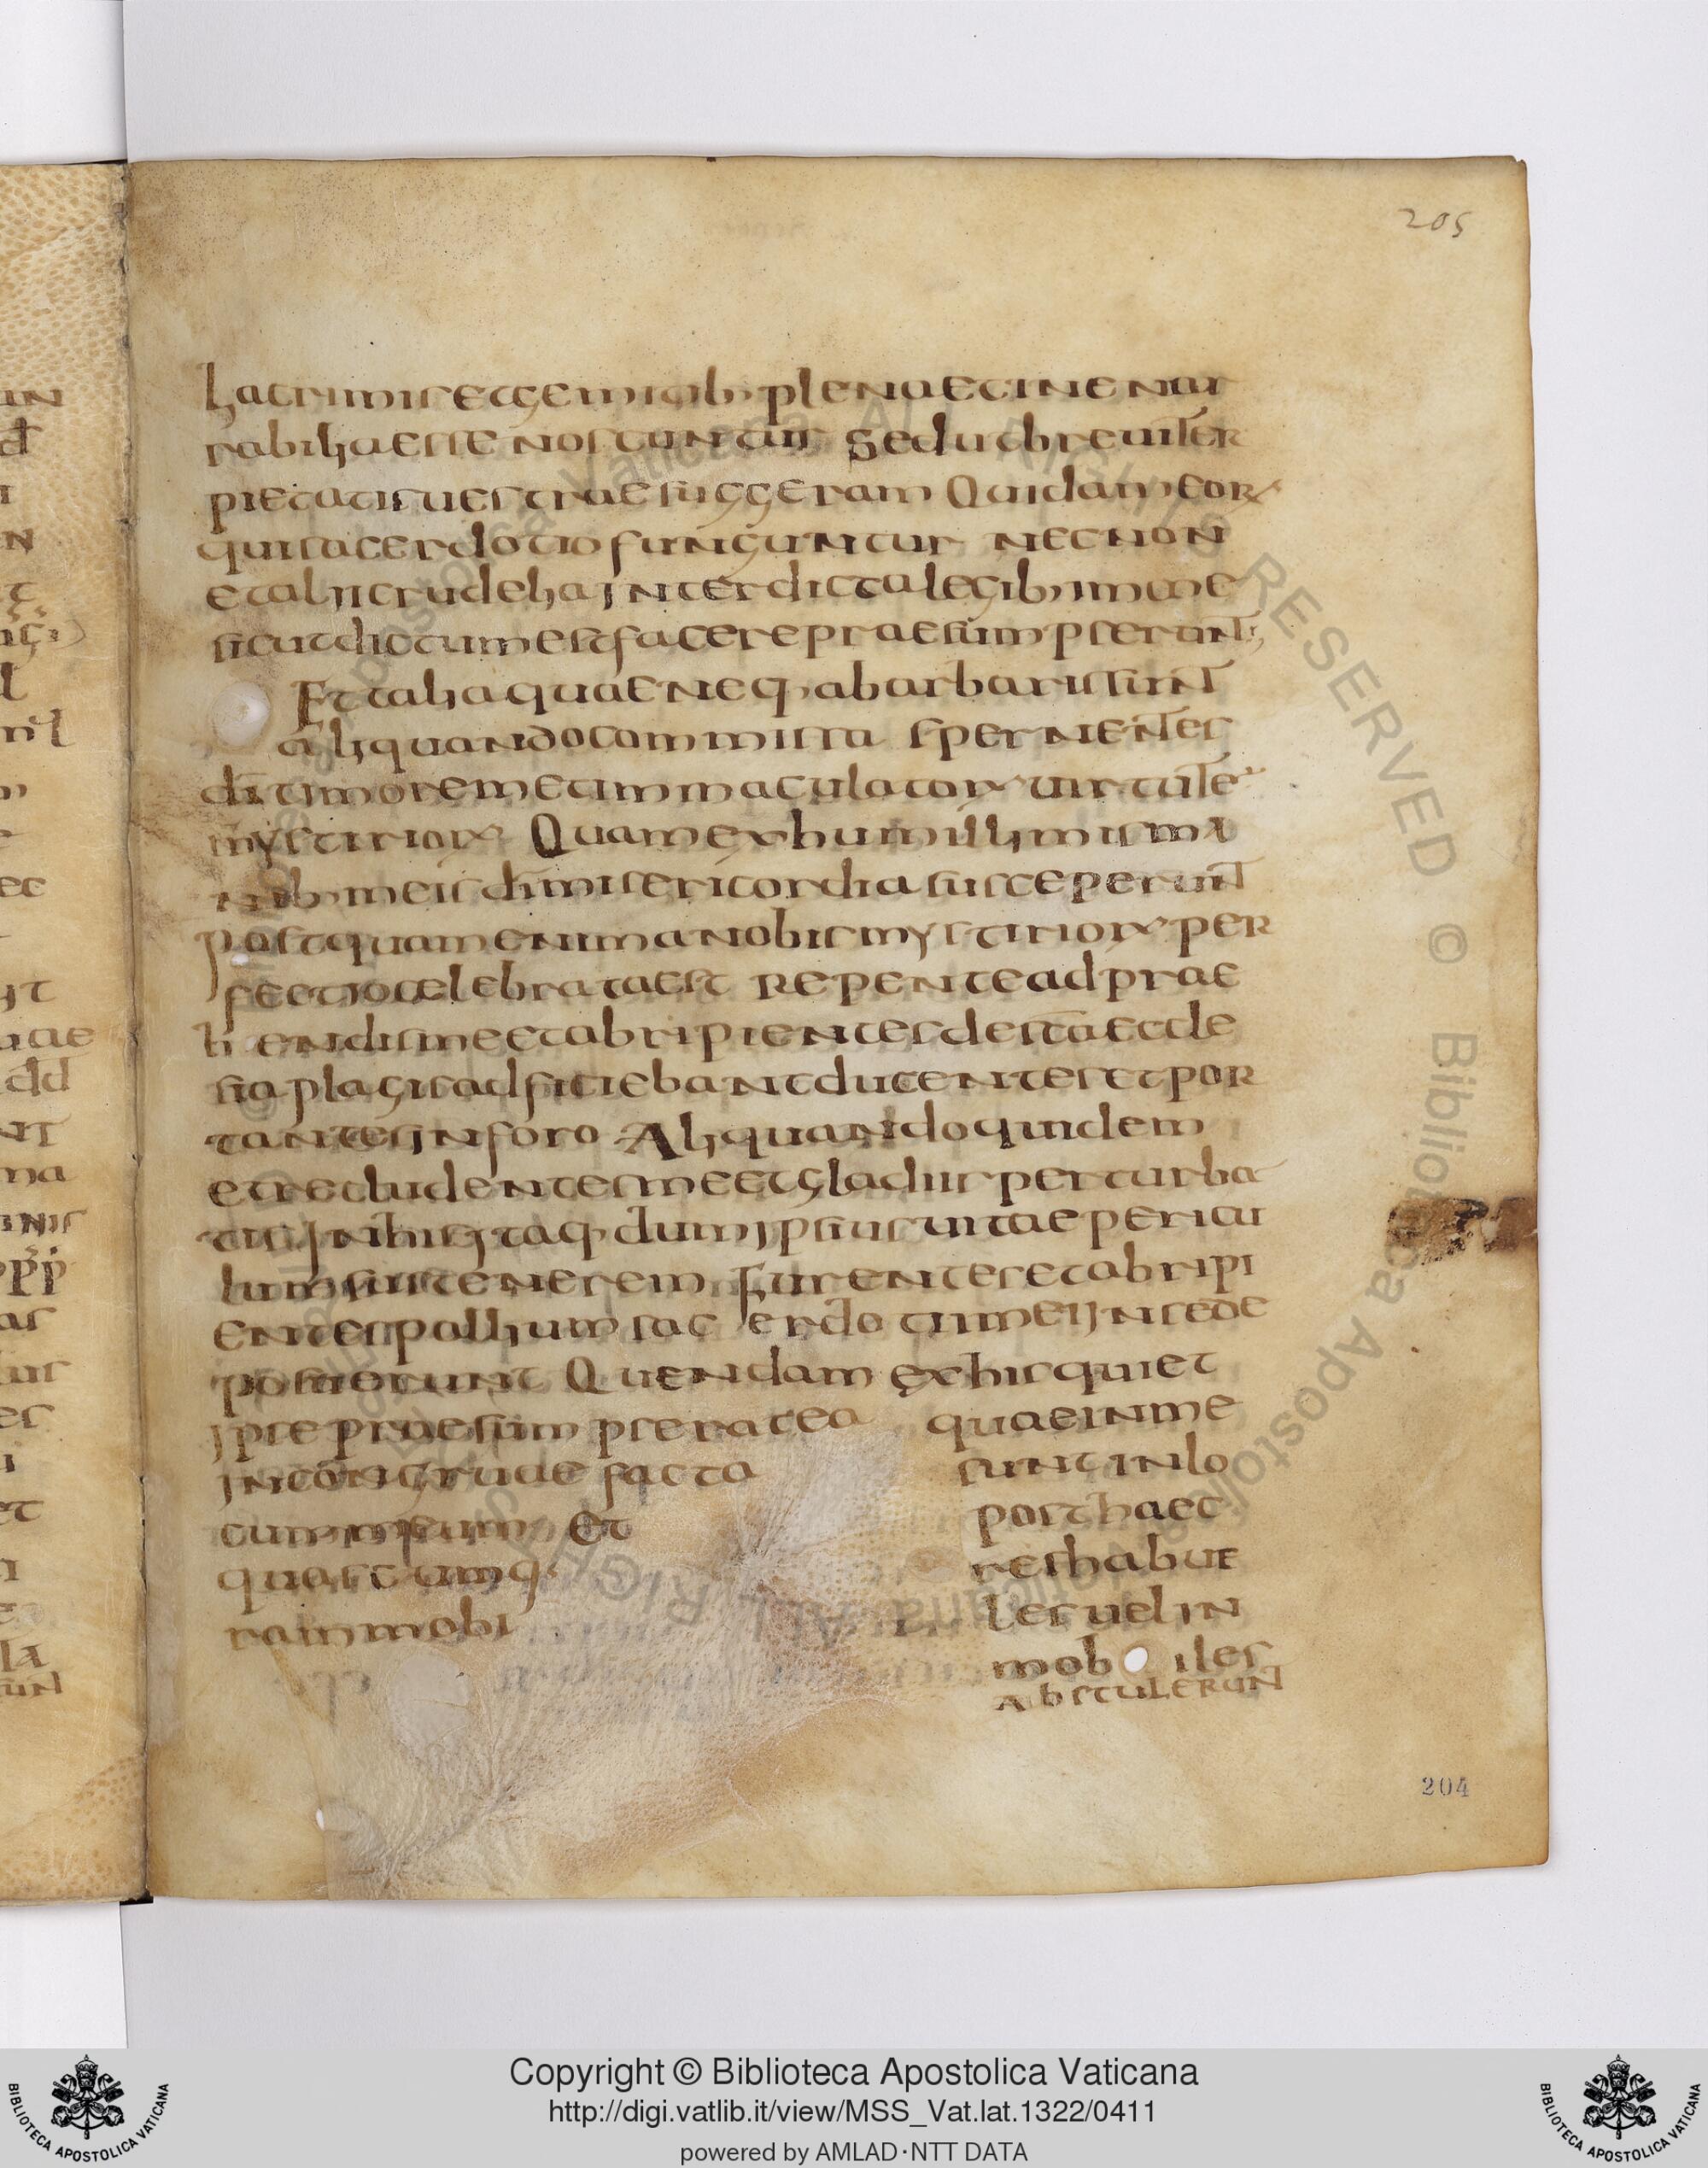 205
lacrimis et gemitib; plena et inenar
rabilia esse noscuntur Sed ut breuiter
pietatis uestrae suggeram Quidam eorꝝ
qui sacerdotio funguntur nec non
et alii crudelia interdicta legib; in me
sicut dictum est facere praesumpserunt;
Et talia quae neq; a barbaris sunt
aliquando commissa spernentes
dī timorem et immaculatorꝝ uirtutē
mystiriorꝝ Quam ex humillimis ma
nib; meis dī misericordia susceperunt
Post quam enim a nobis mystiriorꝝ per
fectio celebrata est Repente adprae
h endis me et abripientes de sta eccle
sia plagis adficiebant ducentes et por
tantes in foro Aliquando quidem
et recludentes me et gladiis perturba
tis In his itaq; dum ipsius uitae pericu
lum sustenerem Furentes et abripi
entes pallium sac erdo tii mei in sede
posuerunt Quendam ex his qui et
ipse praesumpserat ea quae in me
incongruae facta sunt in lo
cum meum Et post haec
quascumq; res habue
ram mobi les uel in
mob iles
abstulerunt
204
Copyright © Biblioteca Apostolica Vaticana
http://digi.vatlib.it/view/MSS_Vat.lat.1322/0411
powered by AMLAD·NTT DATA
BIBLIOTECA APOSTOLICA VATICANA
BIBLIOTECA APOSTOLICA VATICANA